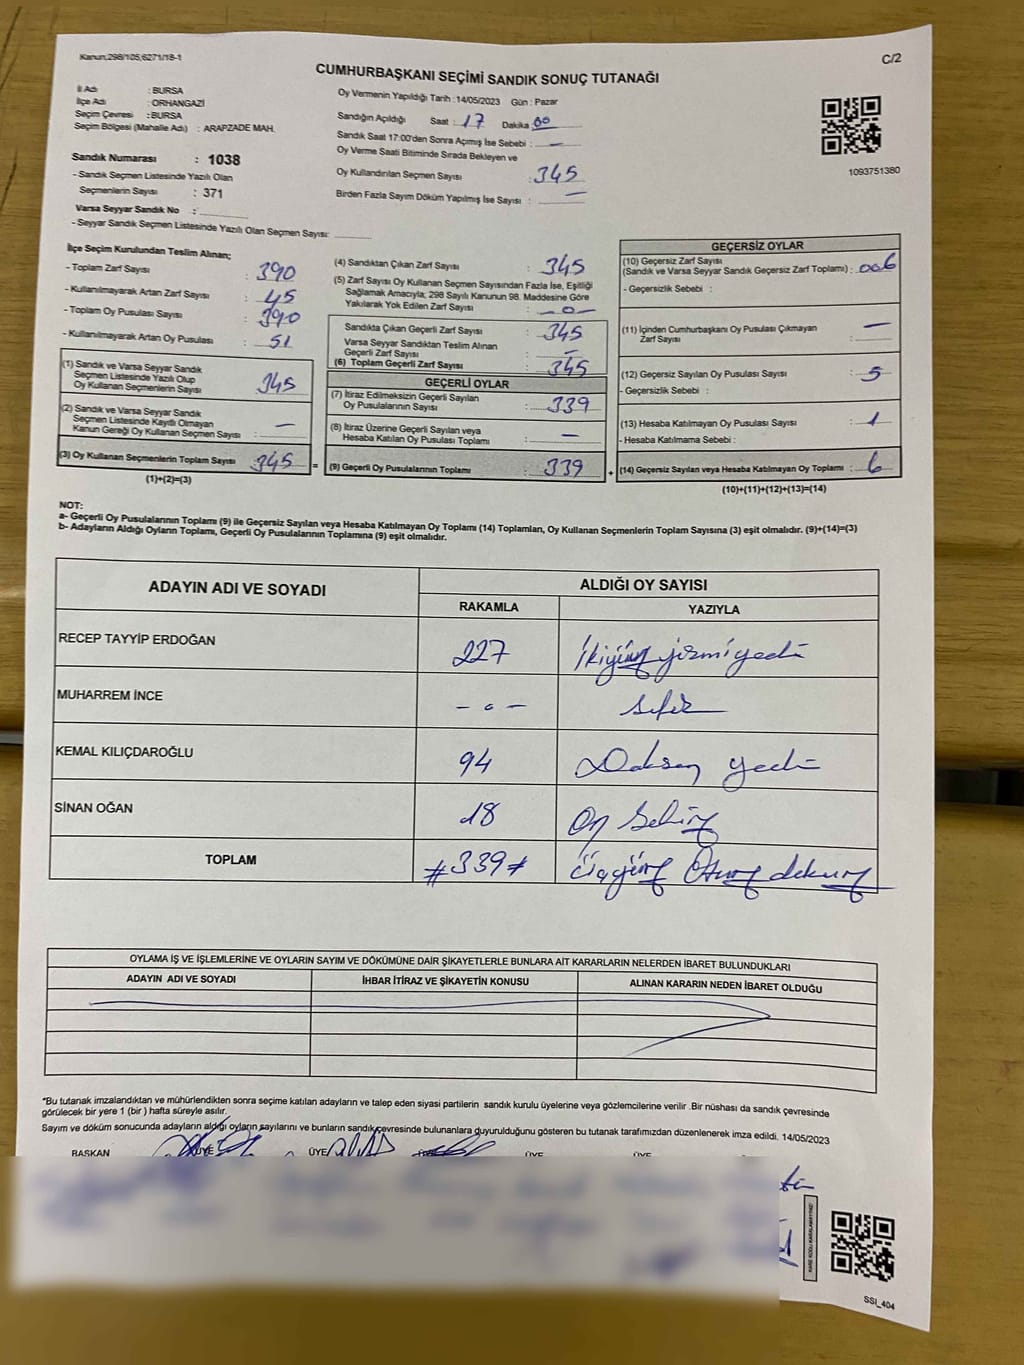 Kanun,298/105,6271/18-1
C/2
CUMHURBAŞKANI SEÇİMİ SANDIK SONUÇ TUTANAĞI
İl Adı : BURSA
İlçe Adı : ORHANGAZİ
Seçim Çevresi : BURSA
Seçim Bölgesi (Mahalle Adı) : ARAPZADE MAH.
Sandık Numarası : 1038
- Sandık Seçmen Listesinde Yazılı Olan
Seçmenlerin Sayısı : 371
Varsa Seyyar Sandık No :
- Seyyar Sandık Seçmen Listesinde Yazılı Olan Seçmen Sayısı:
Oy Vermenin Yapıldığı Tarih :14/05/2023 Gün : Pazar
Sandığın Açıldığı Saat : 17 Dakika 00
Sandık Saat 17:00'den Sonra Açımış İse Sebebi : —
Oy Verme Saati Bitiminde Sırada Bekleyen ve
Oy Kullandırılan Seçmen Sayısı : 345
Birden Fazla Sayım Döküm Yapılmış İse Sayısı : —
1093751380
İlçe Seçim Kurulundan Teslim Alınan;
- Toplam Zarf Sayısı : 390
- Kullanılmayarak Artan Zarf Sayısı : 45
- Toplam Oy Pusulası Sayısı : 390
- Kullanılmayarak Artan Oy Pusulası : 51
(1) Sandık ve Varsa Seyyar Sandık
Seçmen Listesinde Yazılı Olup
Oy Kullanan Seçmenlerin Sayısı : 345
(2) Sandık ve Varsa Seyyar Sandık
Seçmen Listesinde Kayıtlı Olmayan
Kanun Gereği Oy Kullanan Seçmen Sayısı : —
(3) Oy Kullanan Seçmenlerin Toplam Sayısı : 345 =
(1)+(2)=(3)
(4) Sandıktan Çıkan Zarf Sayısı : 345
(5) Zarf Sayısı Oy Kullanan Seçmen Sayısından Fazla İse, Eşitliği
Sağlamak Amacıyla; 298 Sayılı Kanunun 98. Maddesine Göre
Yakılarak Yok Edilen Zarf Sayısı : —0—
Sandıkta Çıkan Geçerli Zarf Sayısı : 345
Varsa Seyyar Sandıktan Teslim Alınan
Geçerli Zarf Sayısı : —
(6) Toplam Geçerli Zarf Sayısı : 345
GEÇERLİ OYLAR
(7) İtiraz Edilmeksizin Geçerli Sayılan
Oy Pusulalarının Sayısı : 339
(8) İtiraz Üzerine Geçerli Sayılan veya
Hesaba Katılan Oy Pusulası Toplamı : —
(9) Geçerli Oy Pusulalarının Toplamı : 339 +
GEÇERSİZ OYLAR
(10) Geçersiz Zarf Sayısı
(Sandık ve Varsa Seyyar Sandık Geçersiz Zarf Toplamı) : 006
- Geçersizlik Sebebi :
(11) İçinden Cumhurbaşkanı Oy Pusulası Çıkmayan
Zarf Sayısı : —
(12) Geçersiz Sayılan Oy Pusulası Sayısı : 5
- Geçersizlik Sebebi :
(13) Hesaba Katılmayan Oy Pusulası Sayısı : 1
- Hesaba Katılmama Sebebi :
(14) Geçersiz Sayılan veya Hesaba Katılmayan Oy Toplamı : 6
(10)+(11)+(12)+(13)=(14)
NOT:
a- Geçerli Oy Pusulalarının Toplamı (9) ile Geçersiz Sayılan veya Hesaba Katılmayan Oy Toplamı (14) Toplamları, Oy Kullanan Seçmenlerin Toplam Sayısına (3) eşit olmalıdır. (9)+(14)=(3)
b- Adayların Aldığı Oyların Toplamı, Geçerli Oy Pusulalarının Toplamına (9) eşit olmalıdır.
ADAYIN ADI VE SOYADI ALDIĞI OY SAYISI
RAKAMLA YAZIYLA
RECEP TAYYİP ERDOĞAN 227 İkiyüz yirmi yedi
MUHARREM İNCE - o - sıfır
KEMAL KILIÇDAROĞLU 94 Doksan yedi
SİNAN OĞAN 18 On Sekiz
TOPLAM #339≠ Üçyüz Otuz dokuz
OYLAMA İŞ VE İŞLEMLERİNE VE OYLARIN SAYIM VE DÖKÜMÜNE DAİR ŞİKAYETLERLE BUNLARA AİT KARARLARIN NELERDEN İBARET BULUNDUKLARI
ADAYIN ADI VE SOYADI İHBAR İTİRAZ VE ŞİKAYETİN KONUSU ALINAN KARARIN NEDEN İBARET OLDUĞU
*Bu tutanak imzalandıktan ve mühürlendikten sonra seçime katılan adayların ve talep eden siyasi partilerin sandık kurulu üyelerine veya gözlemcilerine verilir .Bir nüshası da sandık çevresinde
görülecek bir yere 1 (bir ) hafta süreyle asılır.
Sayım ve döküm sonucunda adayların aldığı oyların sayılarını ve bunların sandık çevresinde bulunanlara duyurulduğunu gösteren bu tutanak tarafımızdan düzenlenerek imza edildi. 14/05/2023
BAŞKAN ÜYE ÜYE ÜYE ÜYE
KARE KODU KARALAMAYINIZ!
SSI_404